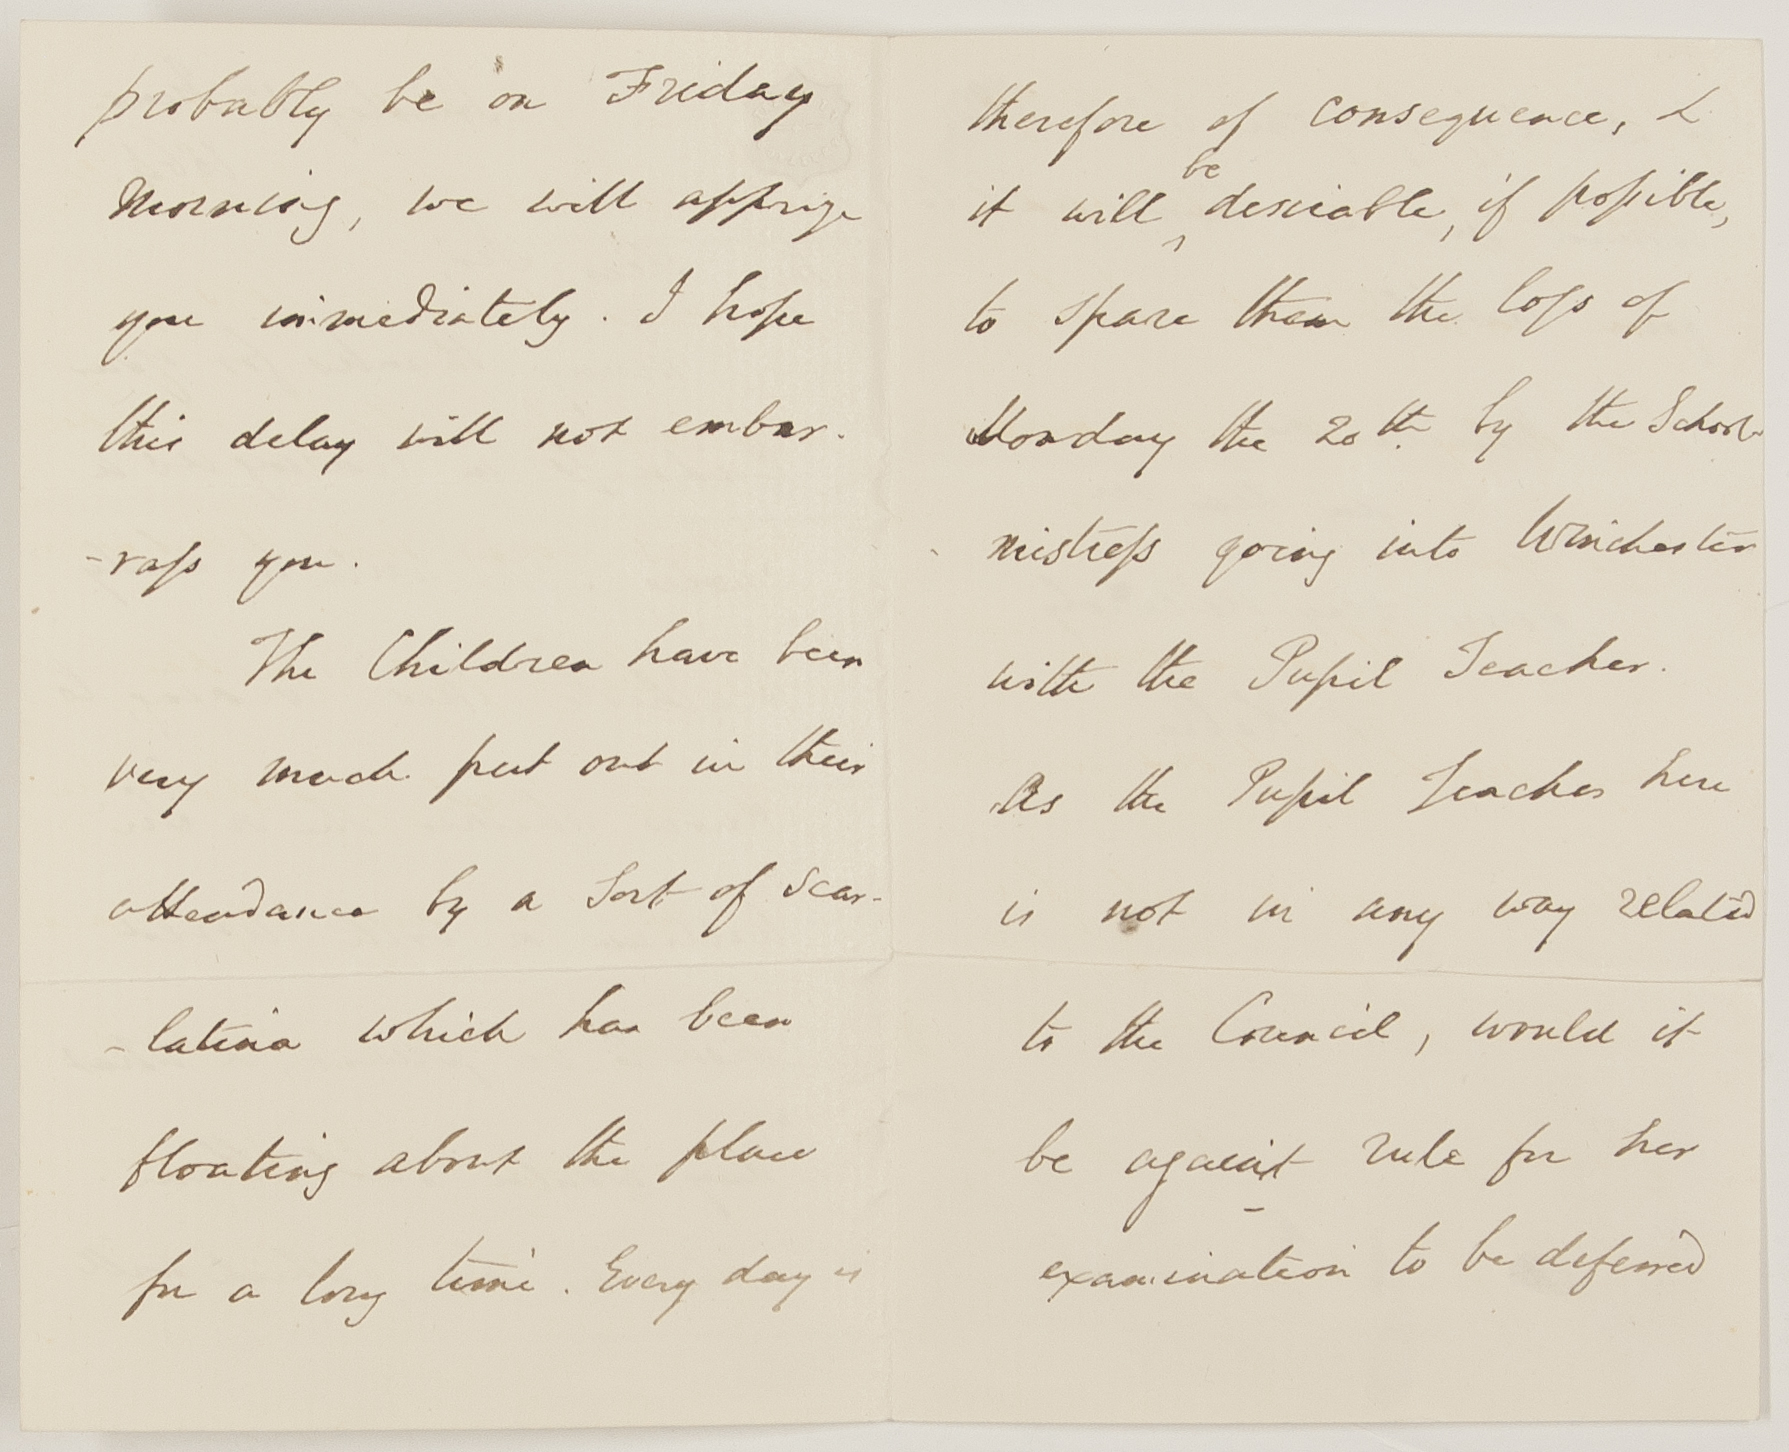 probably be on Friday
Morning, we will apprize
you immediately. I hope
this delay will not embar-
-rass you.
The Children have been
very much put out in their
attendance by a sort of Scar-
-latina which has been
floating about the place
for a long time. Every day is
therefore of consequence, &
be
it will ^ desirable, if possible,
to spare them the loss of
Monday the 20th. by the School-
-mistress going into Winchester
with the Pupil Teacher.
As the Pupil Teacher here
is not in any way related
to the Council, would it
be against rule for her
examination to be deferred